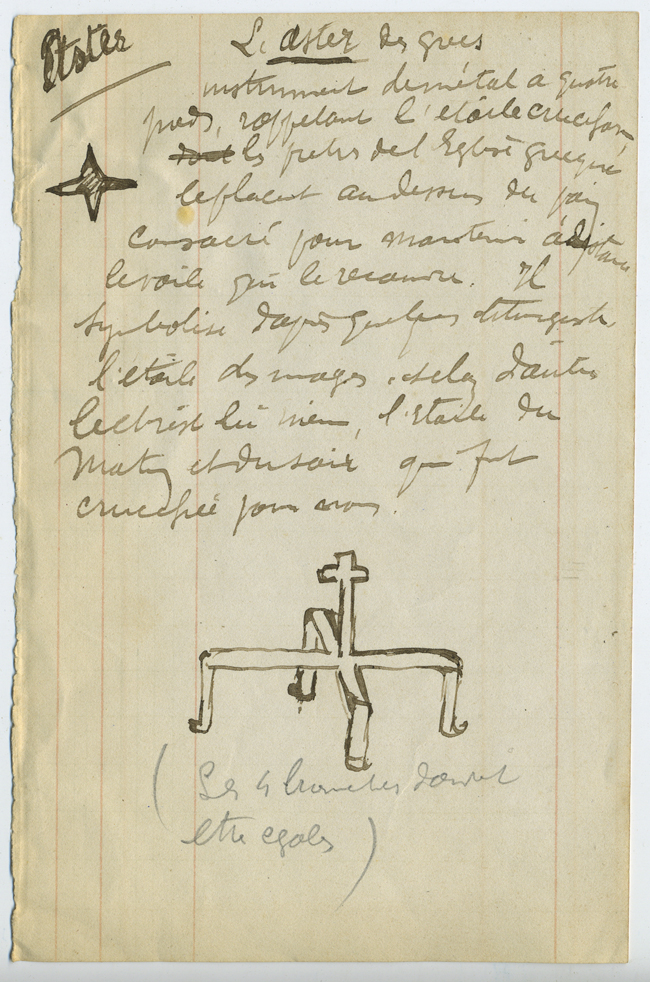 Aster
L'aster des grecs
instrument de métal a quatre
pieds, rappelant l'etoile cruciforme,
dont les pretres de l'Eglise grecque
le placent au dessus du pain
consacré pour maintenir à distance
le voile qui le recouvre. Il
symbolise d'après quelques liturgistes
l'étoile des mages, selon d'autres
le christ lui meme, l'etoile du
Matin et du soir qui fut
crucifiée pour nous.
(Les 4 branches doivent
etre egales)